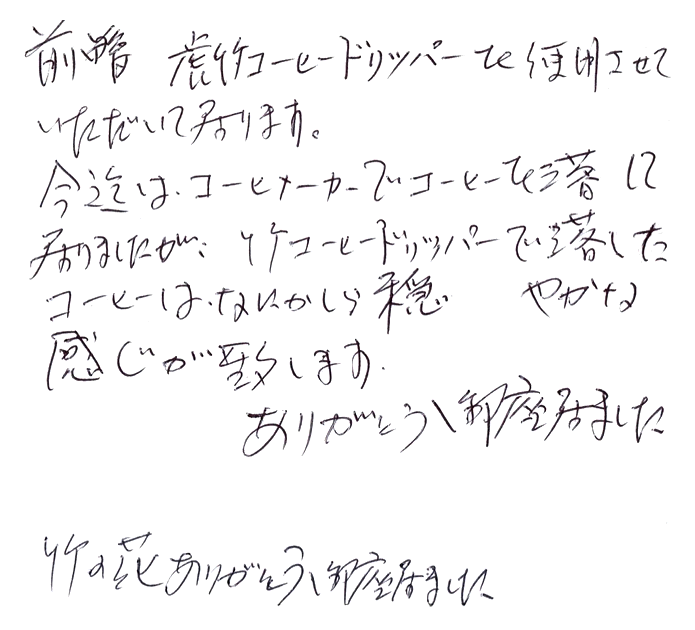 前略 虎竹コーヒードリッパーを使用させて
いただいて居ります。
今迄は、コーヒメーカーでコーヒーを落して
居りましたが、竹コーヒードリッパーで落した
コーヒーは、なにかしら穏 やかな
感じが致します。
ありがとう御座居ました
竹の花ありがとう御座居ました